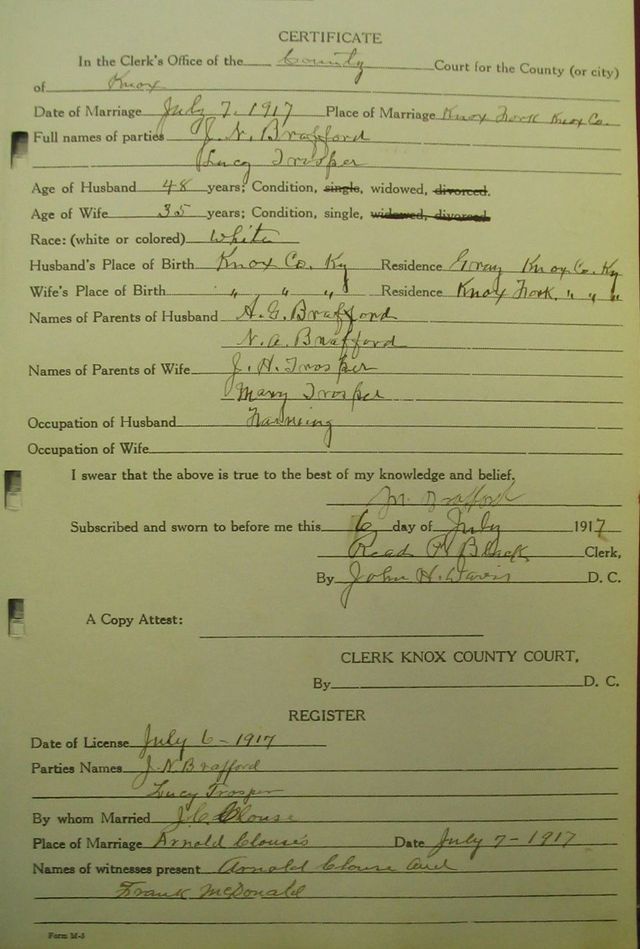 CERTIFICATE
In the Clerk's Office of the County Court for the County (or city)
of Knox
Date of Marriage July 7, 1917 Place of Marriage Knox Fork Knox Co.
Full names of parties J. N. Brafford
Lucy Trosper
Age of Husband 48 years; Condition, single, widowed, divorced.
Age of Wife 35 years; Condition, single, widowed, divorced
Race: (white or colored) White
Husband's Place of Birth Knox Co. Ky Residence Gray Knox Co. Ky
Wife's Place of Birth " " " Residence Knox Fork. " " "
Names of Parents of Husband A. G. Brafford
N. A. Brafford
Names of Parents of Wife J. H. Trosper
Mary Trosper
Occupation of Husband Farming
Occupation of Wife
I swear that the above is true to the best of my knowledge and belief.
Brafford
Subscribed and sworn to before me this 6 day of July 1917
Read P. Black Clerk,
By John H. Davis D. C.
A Copy Attest:
CLERK KNOX COUNTY COURT,
By D. C.
REGISTER
Date of License July 6 - 1917
Parties Names J. N Brafford
Lucy Trosper
By whom Married J. C. Clouse
Place of Marriage Arnold Clouse's Date July 7 - 1917
Names of witnesses present Arnold Clouse and
Frank McDonald
Form M-3